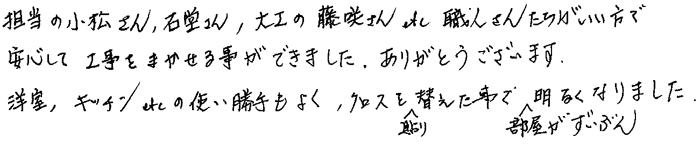 担当の小松さん,石堂さん,大工の藤咲さんetc職人さんたちがいい方で
安心して工事をまかせる事ができました.ありがとうございます.
洋室,キッチンetcの使い勝手もよく,クロスを貼り替えた事で部屋がずいぶん明るくなりました.